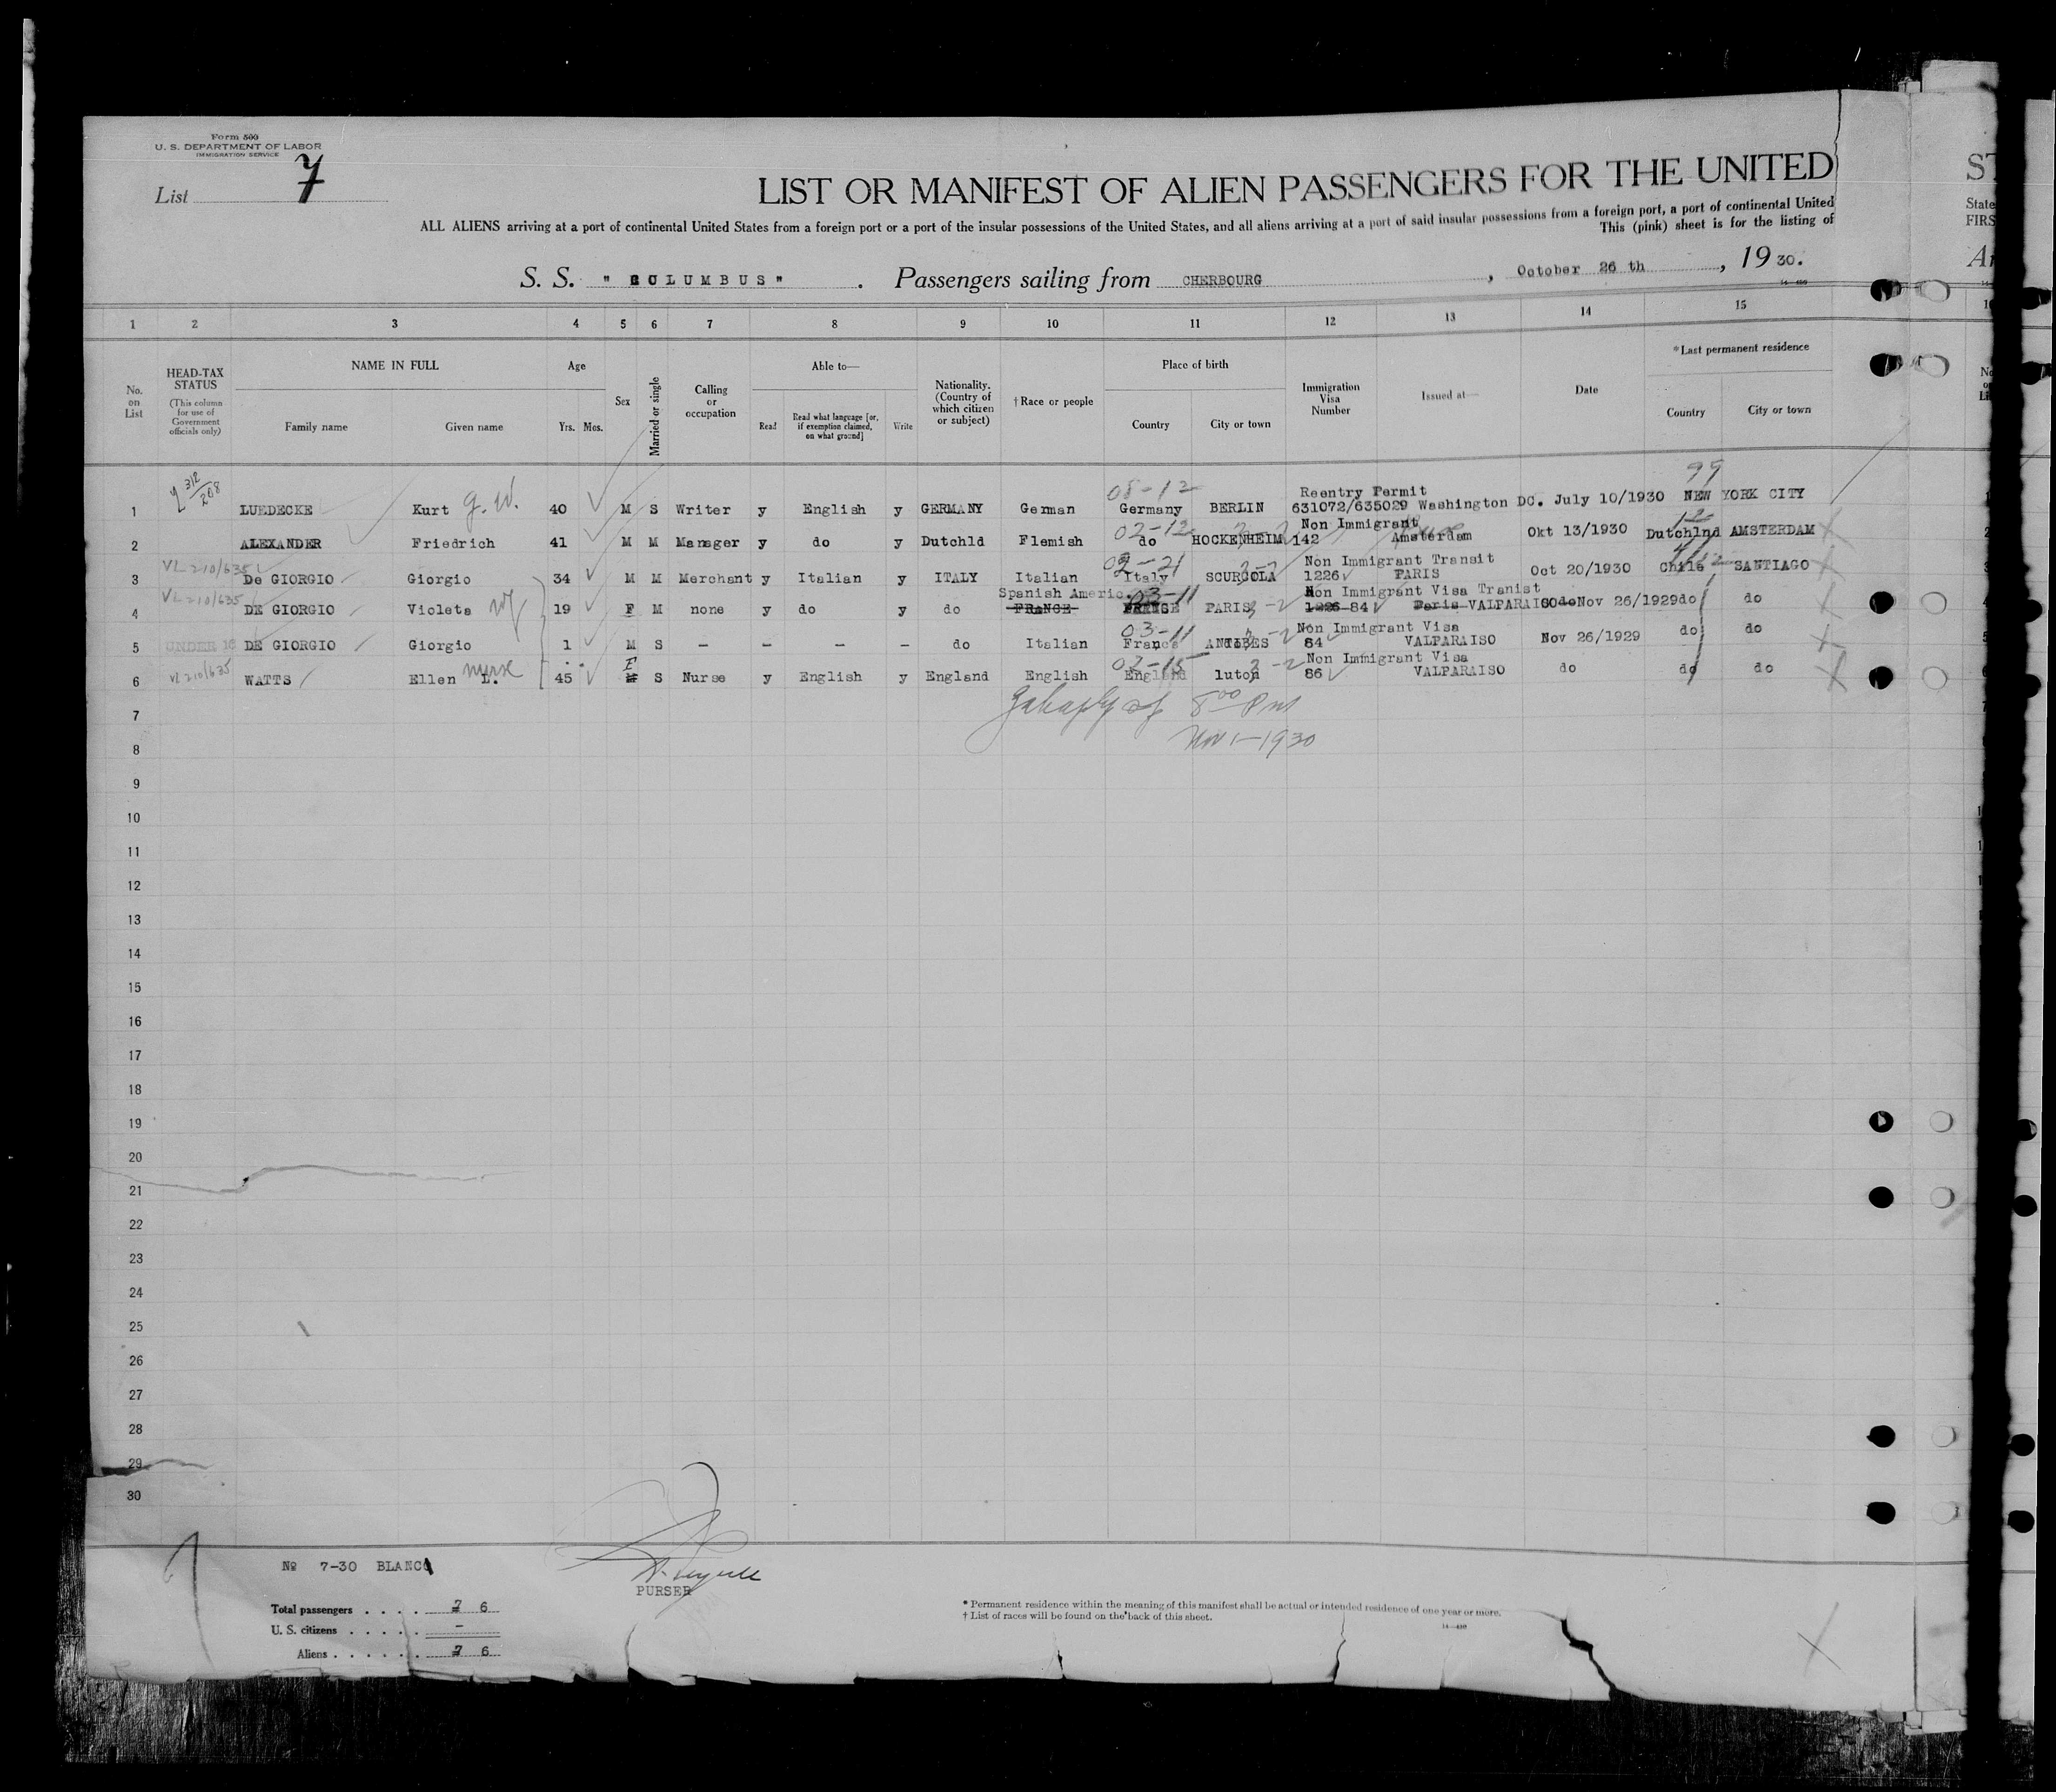 Form 500
U. S. DEPARTMENT OF LABOR
IMMIGRATION SERVICE
List 7
LIST OR MANIFEST OF ALIEN PASSENGERS FOR THE UNITED
ALL ALIENS arriving at a port of continental United States from a foreign port or a port of the insular possessions of the United States, and all aliens arriving at a port of said insular possessions from a foreign port, a port of continental United
This (pink) sheet is for the listing of
S. S. "COLUMBUS". Passengers sailing from CHERBOURG, October 26 th, 19 30.
1 2 3 4 5 6 7 8 9 10 11 12 13 14 15
No. on List
HEAD-TAX STATUS (This column for use of Government officials only)
NAME IN FULL Family name Given name
Age Yrs. Mos.
Sex
Married or single
Calling or occupation
Able to— Read Read what language [or, if exemption claimed, on what ground] Write
Nationality. (Country of which citizen or subject)
†Race or people
Place of birth Country City or town
Immigration Visa Number
Issued at—
Date
*Last permanent residence Country City or town
312/208 05-12 Reentry Permit 99
1 LUEDECKE Kurt G. W. 40 M S Writer y English y GERMANY German Germany BERLIN 631072/635029 Washington DC. July 10/1930 NEW YORK CITY
02-12 Non Immigrant 12
2 ALEXANDER Friedrich 41 M M Manager y do y Dutchld Flemish do HOCKENHEIM 142 Amsterdam Okt 13/1930 Dutchlnd AMSTERDAM
VL 210/635 Non Immigrant Transit
3 De GIORGIO Giorgio 34 M M Merchant y Italian y ITALY Italian Italy SCURCOLA 1226 PARIS Oct 20/1930 Chile SANTIAGO
VL 210/635 Spanish Americ. 03-11 Non Immigrant Visa Tranist
4 DE GIORGIO Violeta wf 19 F M none y do y do FRANCE FRANCE PARIS 1226 84 Paris VALPARAISO do Nov 26/1929 do do
03-11 Non Immigrant Visa
5 UNDER 16 DE GIORGIO Giorgio 1 M S - - - - do Italian France ANTIBES 84 VALPARAISO Nov 26/1929 do do
VL 210/635 nurse F 02-15 Non Immigrant Visa
6 WATTS Ellen L. 45 M S Nurse y English y England English England luton 86 VALPARAISO do do do
7 8 00 Pm
8 Nov 1-1930
9
10
11
12
13
14
15
16
17
18
19
20
21
22
23
24
25
26
27
28
29
30
№ 7-30 BLANCO
PURSER
Total passengers . . . . 7 6
U. S. citizens . . . . . -
Aliens . . . . . . 7 6
* Permanent residence within the meaning of this manifest shall be actual or intended residence of one year or more.
† List of races will be found on the back of this sheet.